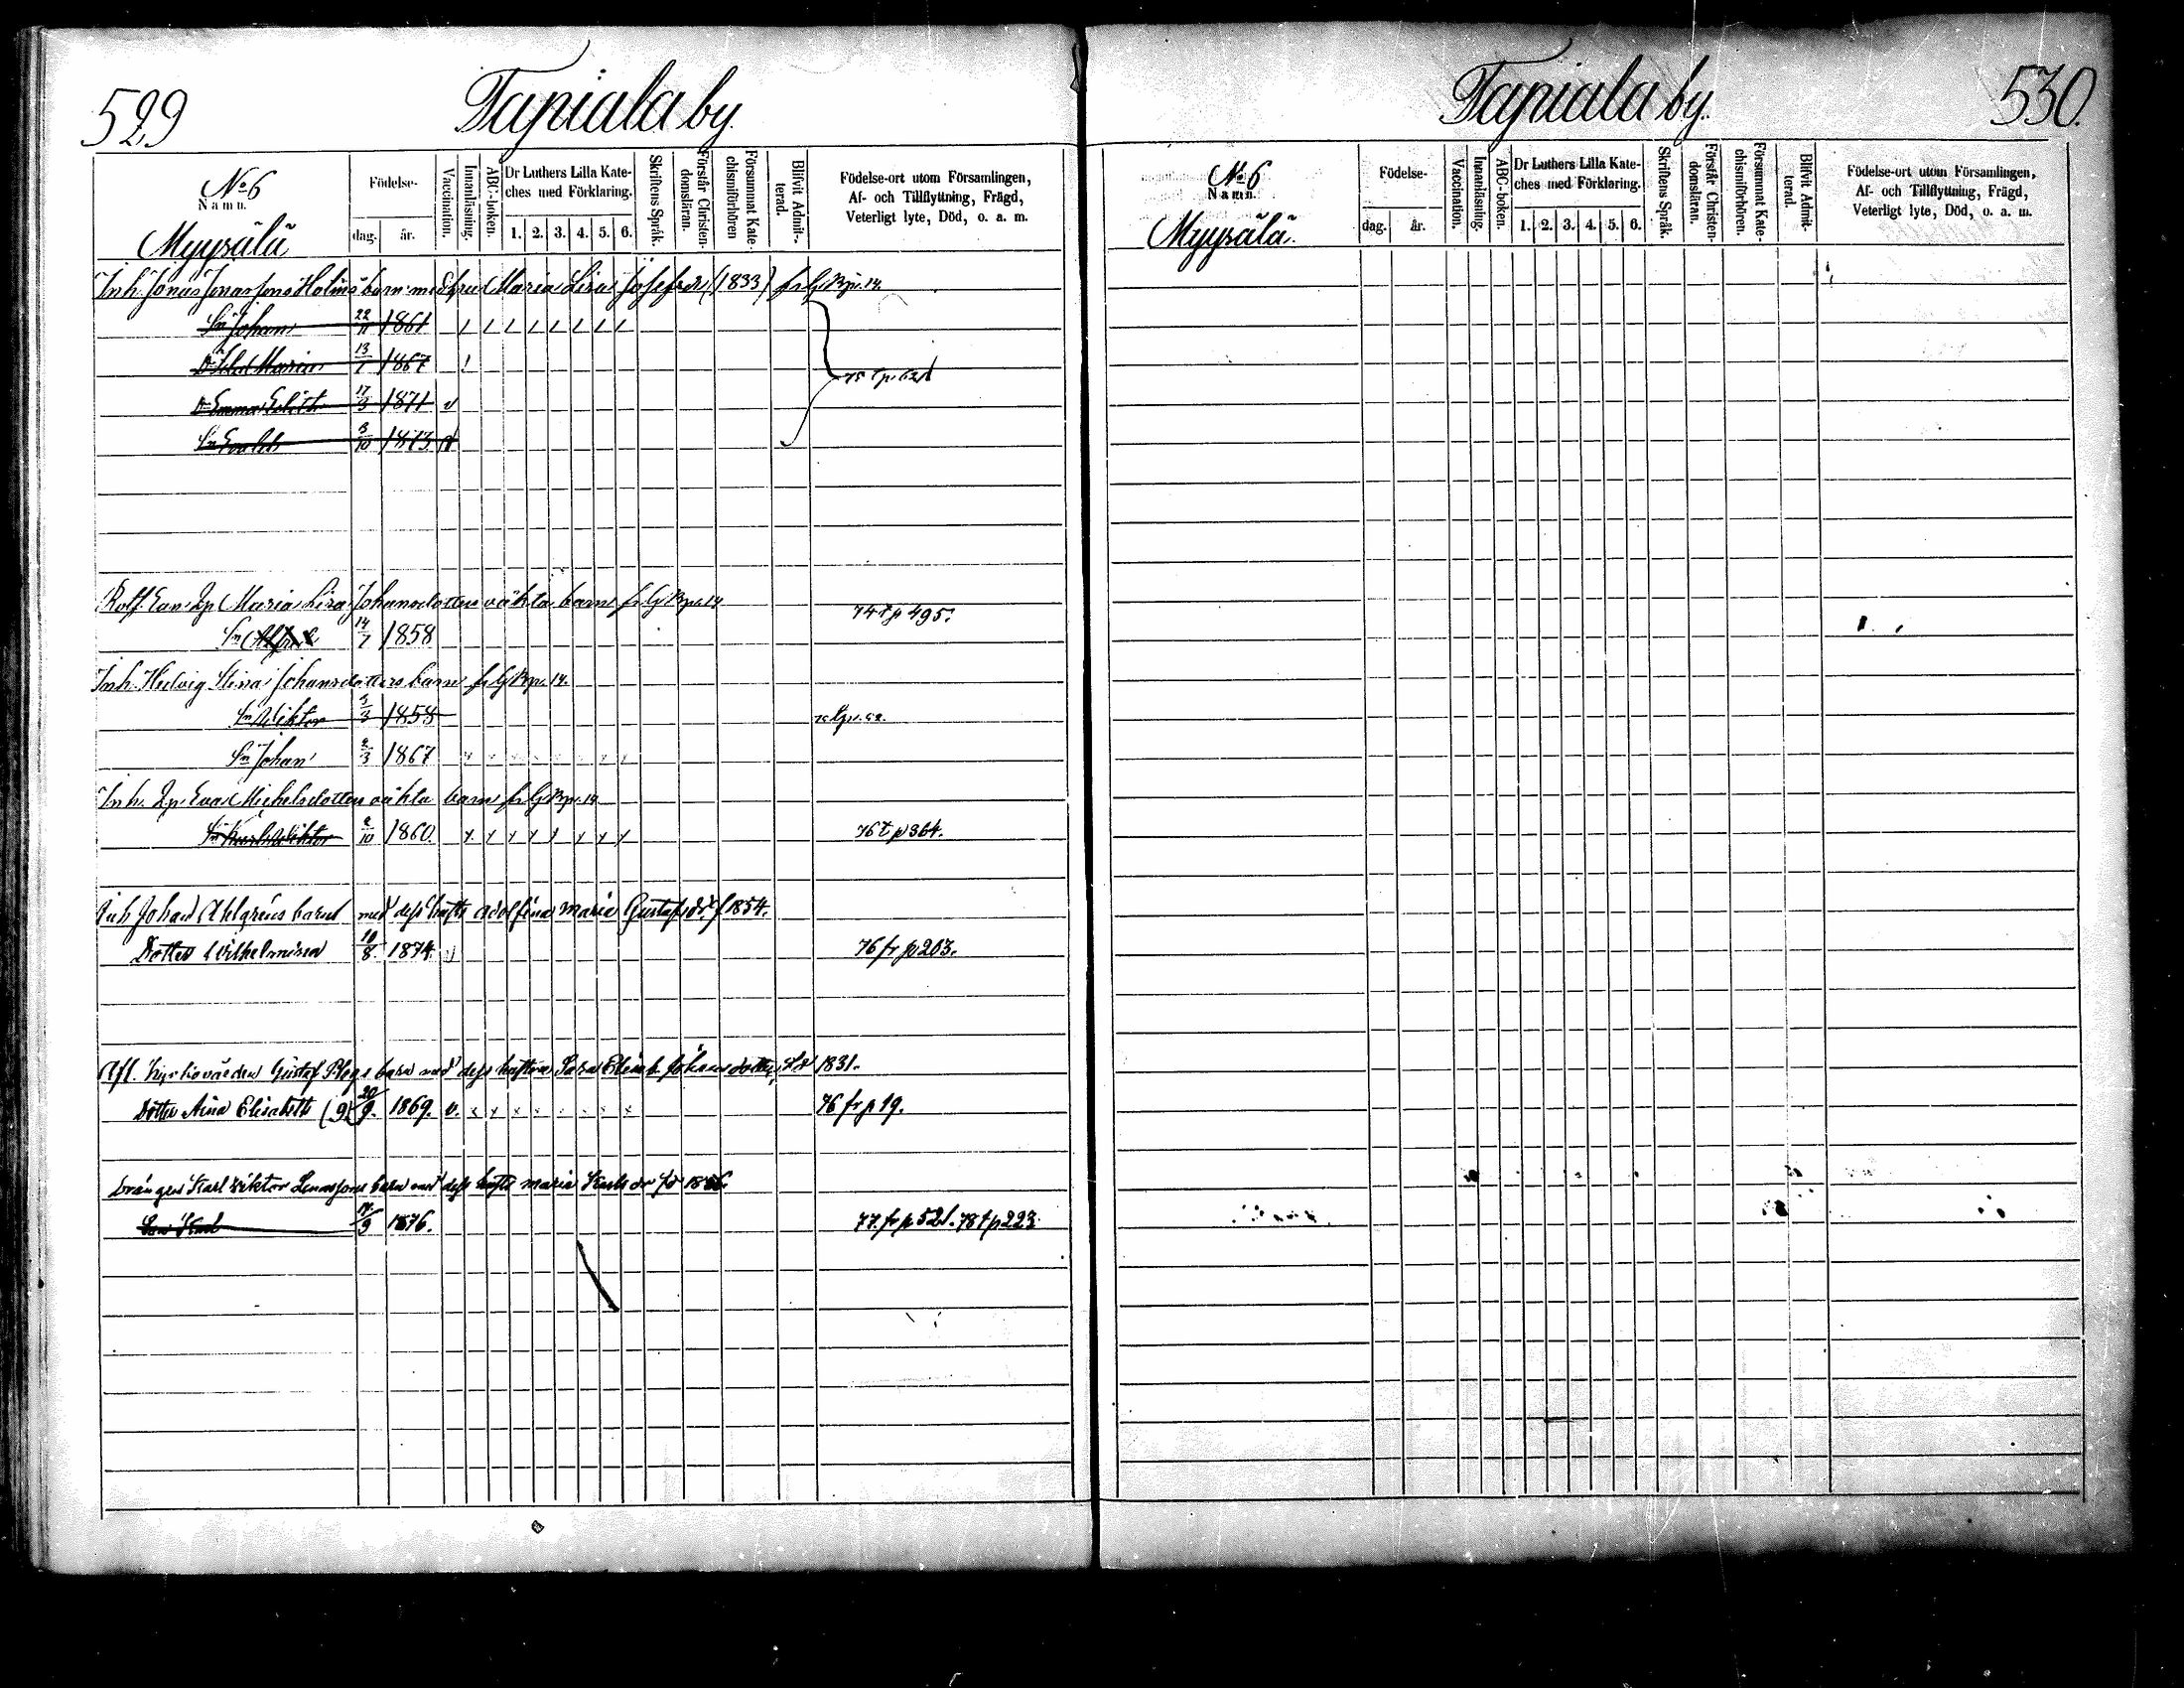 529
Tapiala by.
No 6
Namn.
Myysälä
Födelse-
dag. år.
Vaccination.
Innanläsning.
ABC-boken.
Dr Luthers Lilla Kate-
ches med Förklaring.
1. 2. 3. 4. 5. 6.
Skriftens Språk.
Förstår Christen-
domsläran.
Försummat Kate-
chismiförhören
Blifvit Admit-
terad.
Födelse-ort utom Församlingen,
Af- och Tillflyttning, Frägd,
Veterligt lyte, Död, o. a. m.
Inh. Jonas Jonassons barn med Maria Lisa Josefsdr (1833) fr
Sn Johan 22/11 1861
Dr Maria 13/7 1867
Dr Emma 17/3 1871 v
Sn 3/10 1873
Maria Lisa Johansdotters oäkta barn fr
Sn 14/7 1858 74 t p 495.
Inh. Hedvig Stina Johansdotters barn fr
Sn Wiktor 3/3 1858
Sn Johan 2/3 1867
Inh. Eva Michelsdotters oäkta barn fr
Sn Karl Wiktor 2/10 1860. 76 t p 364.
Inh Johan Ahlgréns barn med dess Adolfina Maria Gustafsdr f 1854.
Dotter Wilhelmina 10/8. 1874. v 76 fr p 203.
Afl. Kyrkovärden Gustaf barn med dess hustru Sara Johansdotter, 1831.
Dotter Aina Elisabeth (9) 20/9. 1869. v. 76 fr p 19.
Drängen Karl Viktor barn med dess Maria Karlsdr
Son Karl 9 1876. 77. fr p 521. 78 t p 223.
Tapiala by.
530.
No 6
Namn.
Myysälä.
Födelse-
dag. år.
Vaccination.
Innanläsning.
ABC-boken.
Dr Luthers Lilla Kate-
ches med Förklaring.
1. 2. 3. 4. 5. 6.
Skriftens Språk.
Förstår Christen-
domsläran.
Försummat Kate-
chismiförhören.
Blifvit Admit-
terad.
Födelse-ort utom Församlingen,
Af- och Tillflyttning, Frägd,
Veterligt lyte, Död, o. a. m.